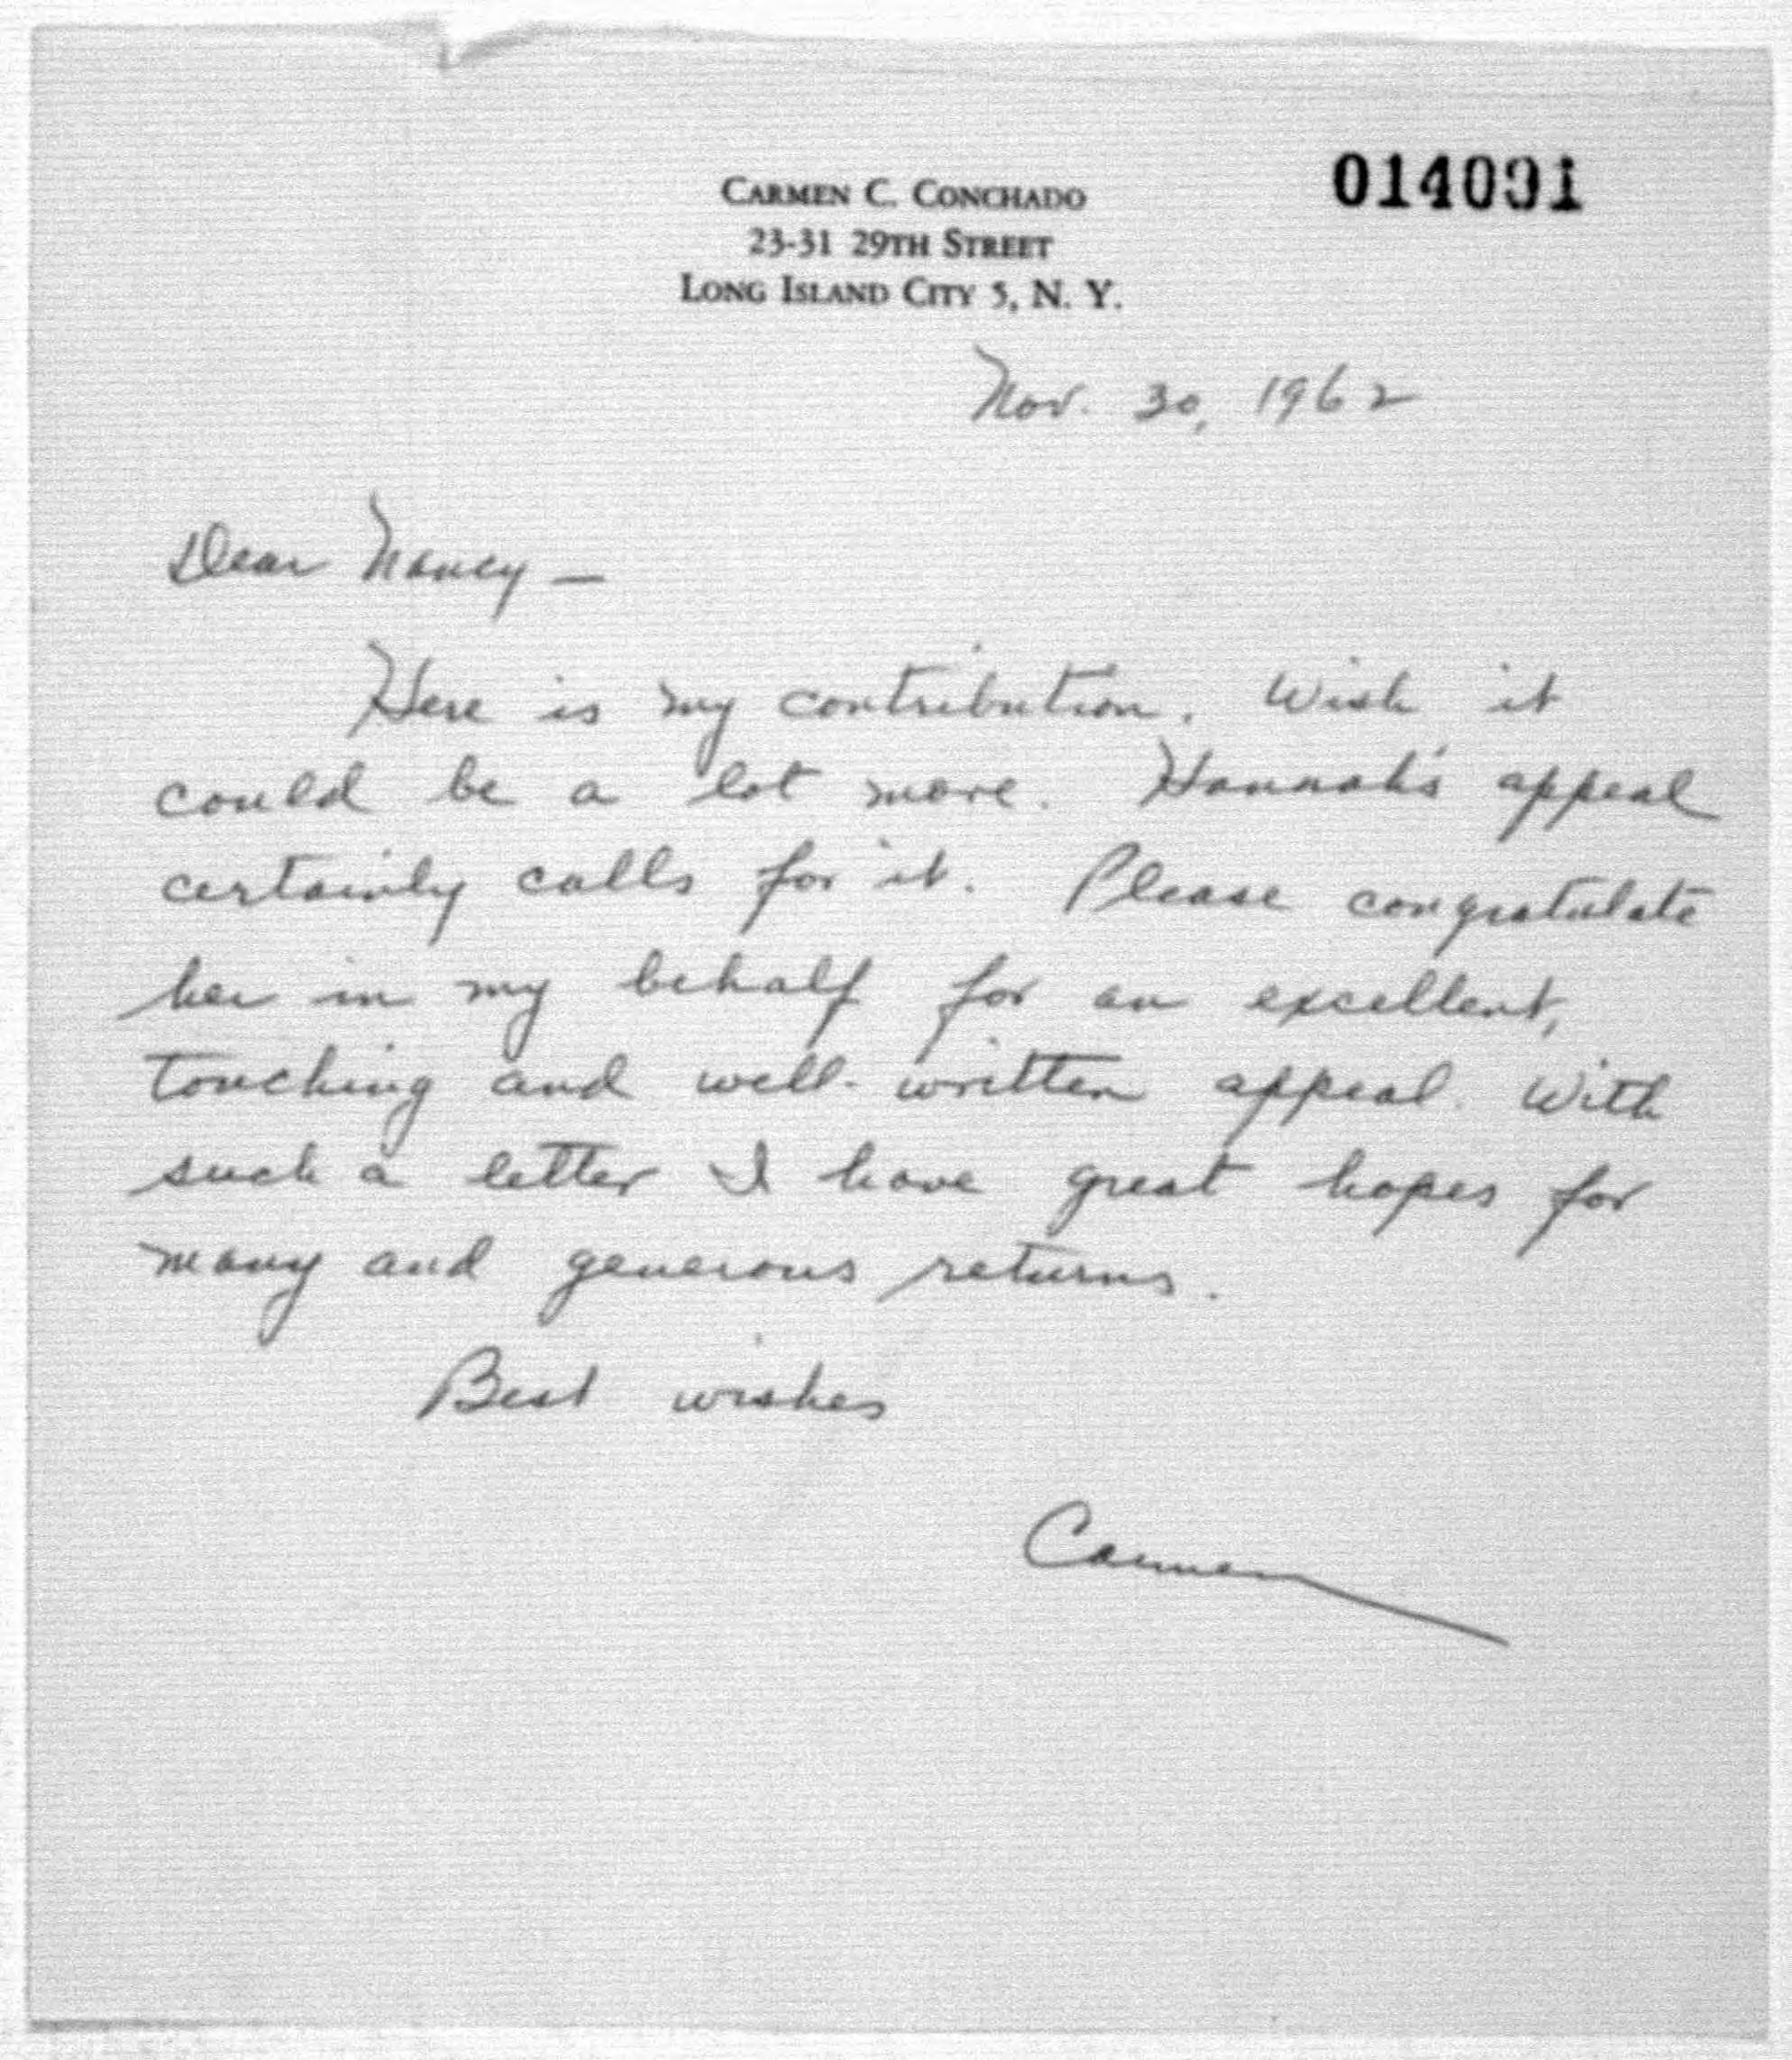 CARMEN C. CONCHADO
23-31 29TH STREET
LONG ISLAND CITY 5, N. Y.
Nov. 30, 1962
Dear Nancy —
Here is my contribution. Wish it
could be a lot more. Hannah's appeal
certainly calls for it. Please congratulate
her in my behalf for an excellent,
touching and well-written appeal. With
such a letter I have great hopes for
many and generous returns.
Best wishes
Carmen